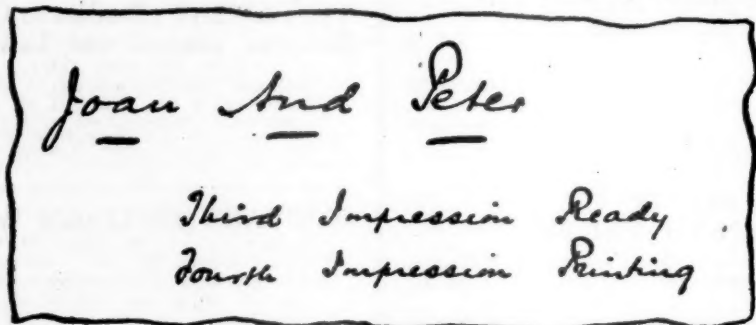 Joan And Peter
Third Impression Ready
Fourth Impression Printing